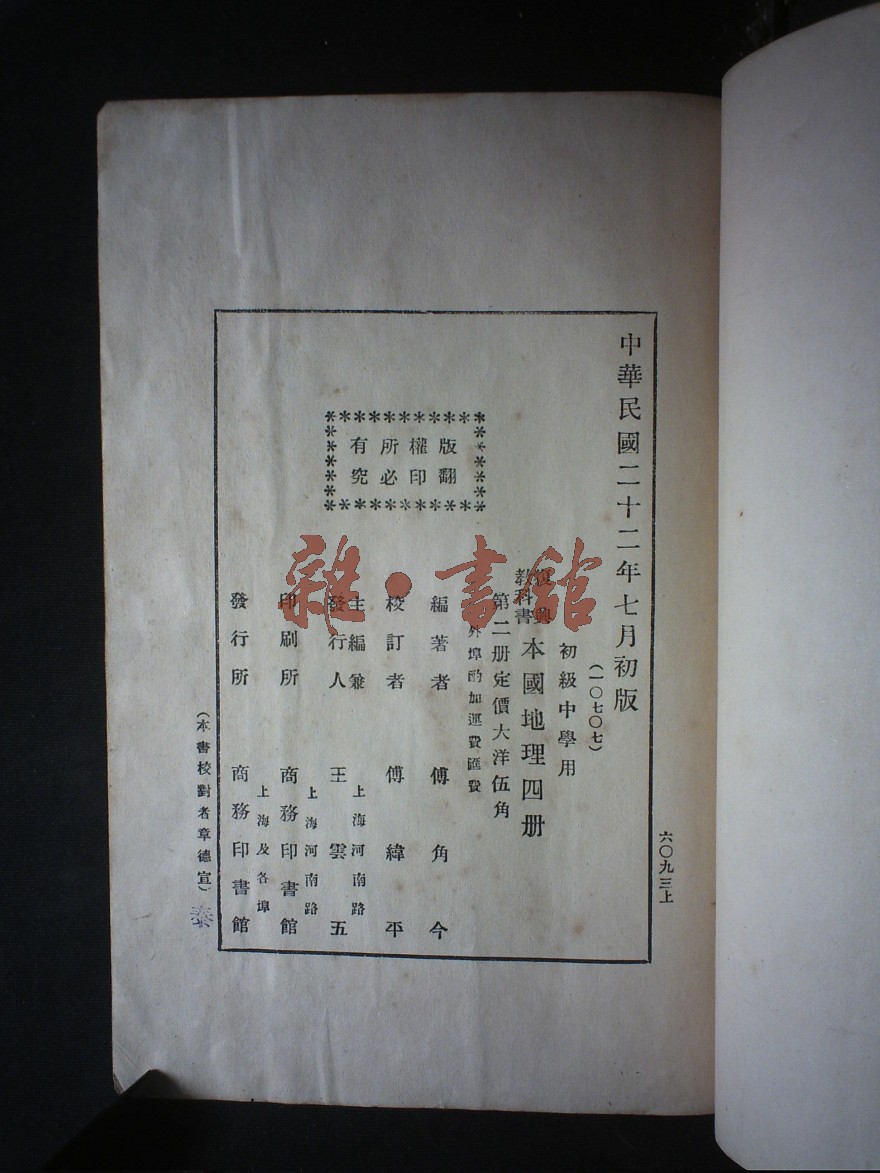 六〇九三上
中華民國二十二年七月初版
(一〇七〇七)
初級中學用
復興
教科書
本國地理四册
第二册定價大洋伍角
外埠酌加運費匯費
版權所有
翻印必究
編著者 傅角今
校訂者 傅緯平
主編兼
發行人
上海河南路
王雲五
印刷所
上海河南路
商務印書館
發行所
上海及各埠
商務印書館
(本書校對者章德宣)
泰
雜·書館